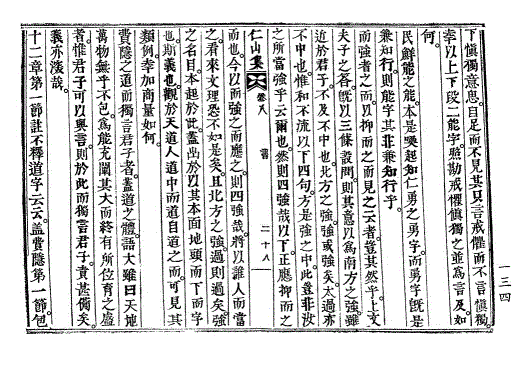 下愼獨意思自足而不見其只言戒懼而不言愼獨
幸以上下段二能字照勘戒懼愼獨之並爲言及如
何
民鮮能之能本是喚起知仁勇之勇字而勇字旣是
兼知行則能字其非兼知行乎
而強者之而以抑而之而見之云者豈其然乎上文
夫子之答旣以三條設問則其意以爲南方之強雖
近於君子不及不中也北方之強強或強矣太過亦
不中也惟和不流以下四句方是強之中此豈非汝
之所當強乎云爾也然則四強哉以下正應抑而之
仁山集 卷八 書 二十八
而也今以而強之而應之則四強哉將以誰人而當
之看來文理恐不如是矣且北方之強過則過矣強
之名目本起於此蓋出於以其本面地頭而下而字
也斯義也觀於天道人道中而道自道之而可見其
類例幸加商量如何
費隱之道而獨言君子者蓋道之體語大雖曰天地
萬物無乎不包爲能充闡其大而終有所位育之盛
者惟君子可以與言則於此而獨言君子貴甚備矣
義亦淺哉
十二章第一節註不釋道字云云蓋費隱第一節包
一三四